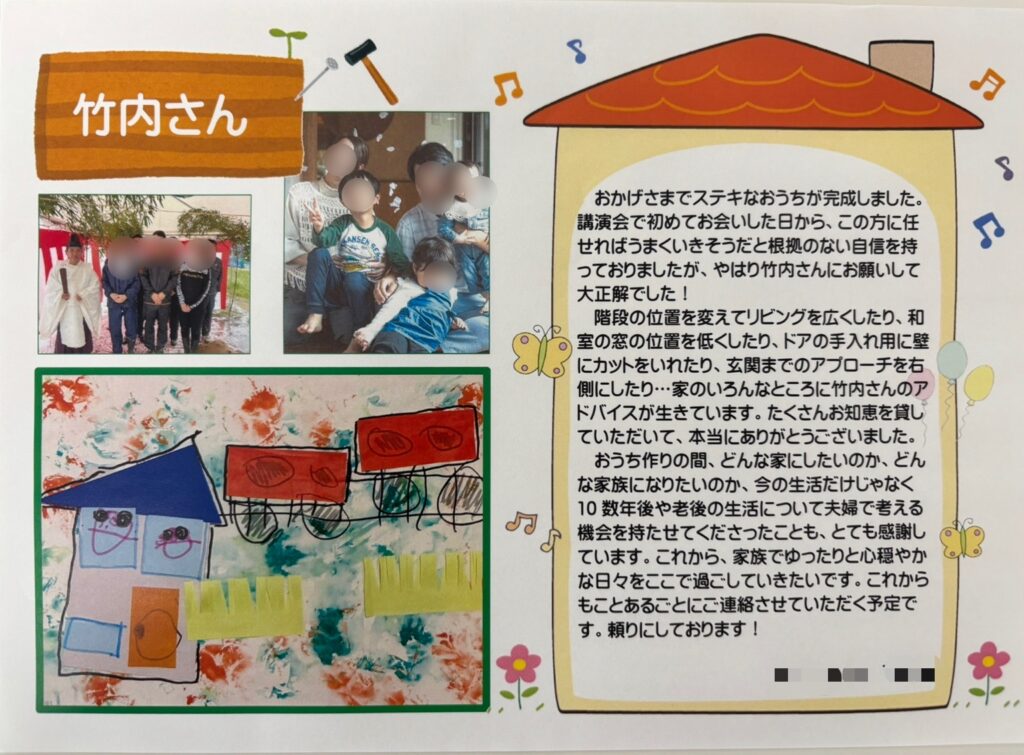 竹内さん
おかげさまでステキなおうちが完成しました。
講演会で初めてお会いした日から、この方に任
せればうまくいきそうだと根拠のない自信を持
っておりましたが、やはり竹内さんにお願いして
大正解でした！
階段の位置を変えてリビングを広くしたり、和
室の窓の位置を低くしたり、ドアの手入れ用に壁
にカットをいれたり、玄関までのアプローチを右
側にしたり…家のいろんなところに竹内さんのア
ドバイスが生きています。たくさんお知恵を貸し
ていただいて、本当にありがとうございました。
おうち作りの間、どんな家にしたいのか、どん
な家族になりたいのか、今の生活だけじゃなく
10 数年後や老後の生活について夫婦で考える
機会を持たせてくださったことも、とても感謝し
ています。これから、家族でゆったりと心穏やか
な日々をここで過ごしていきたいです。これから
もことあるごとにご連絡させていただく予定で
す。頼りにしております！